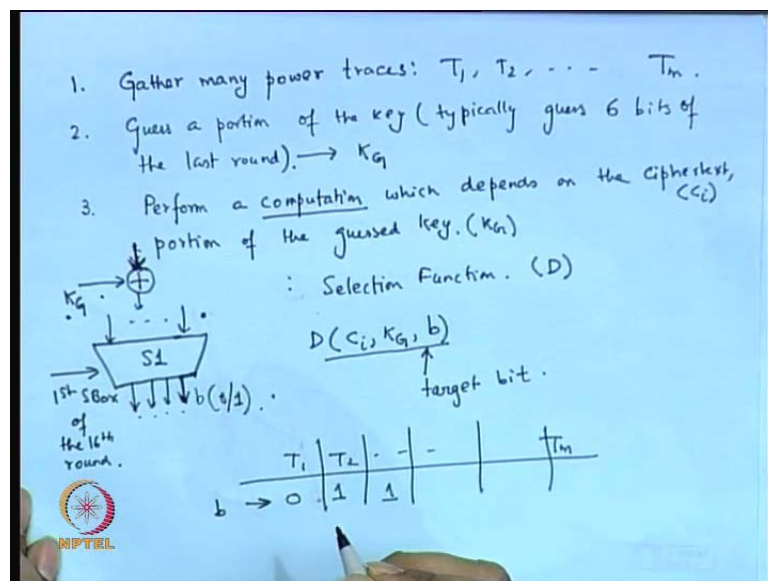 1. Gather many power traces: T1, T2, ---- Tm.
2. Guess a portion of the key (typically guess 6 bits of
the last round). → KG
3. Perform a computation which depends on the ciphertext,
(Ci)
portion of the guessed key. (KG)
: Selection Function. (D)
KG
S1
D(Ci, KG, b)
target bit.
1st SBox
of
the 16th
round.
b(0/1).
T1 | T2 | - - | - | | Tm
b → 0 | 1 | 1 |
NPTEL